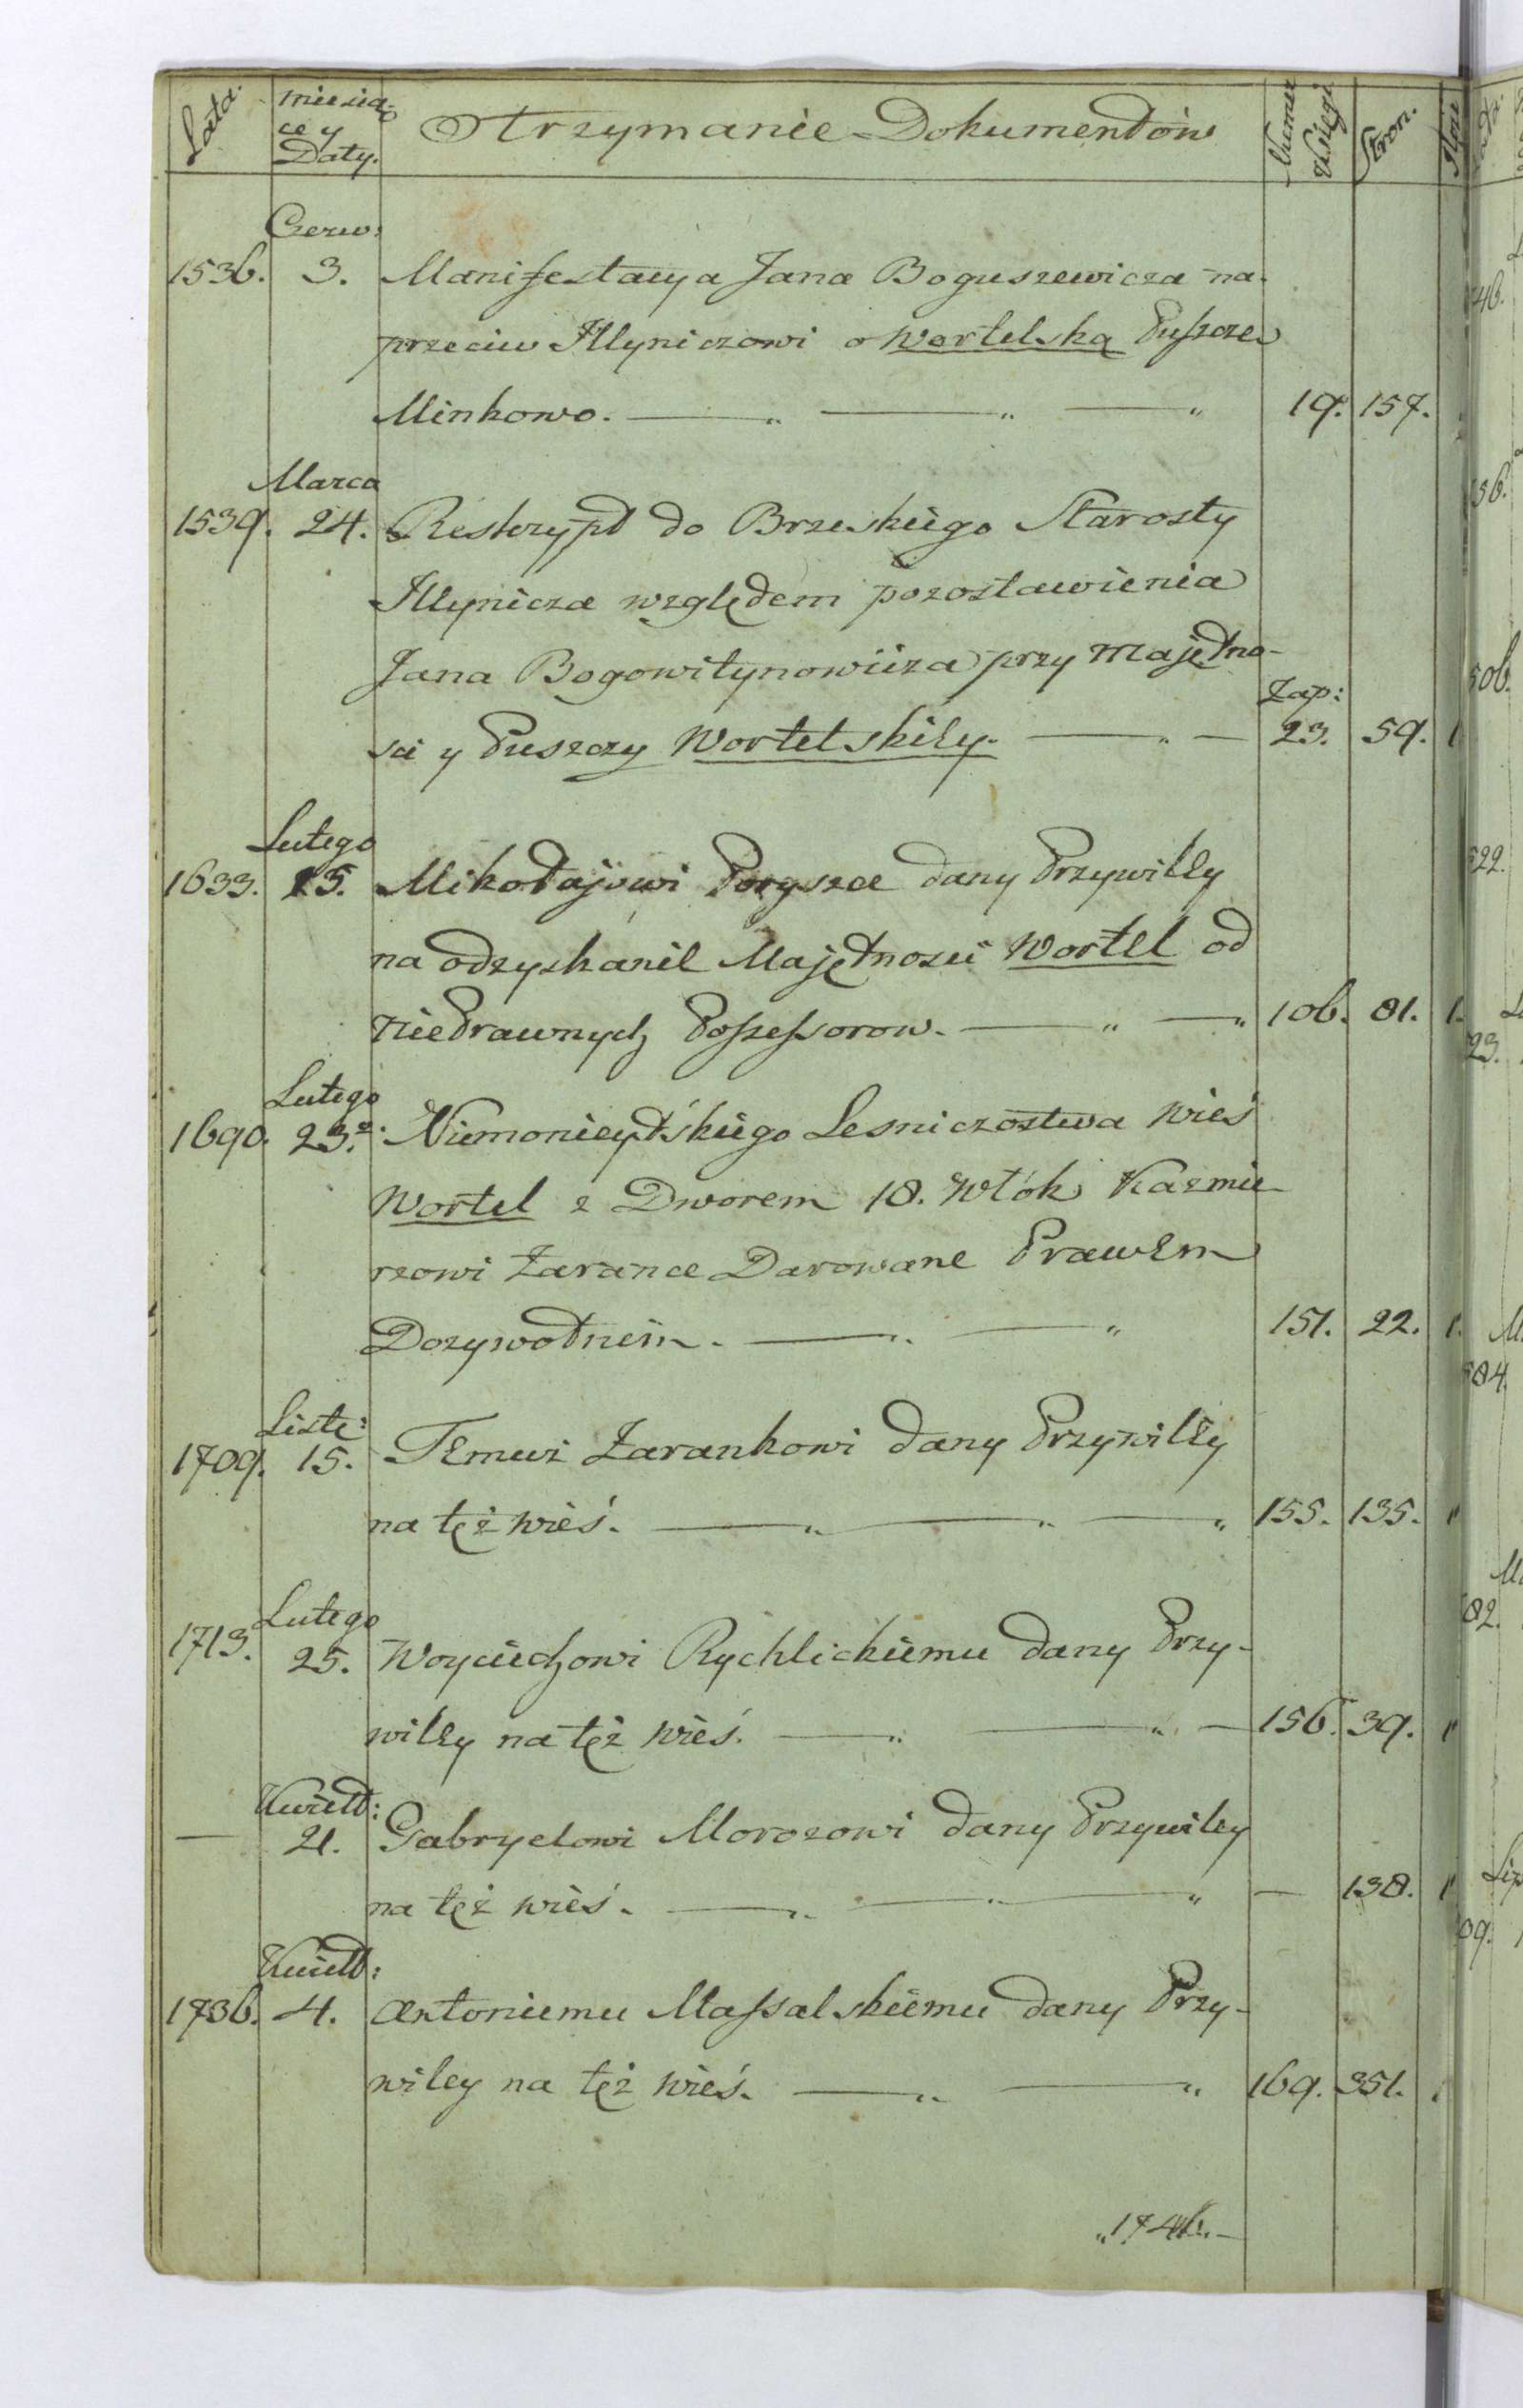 Lata. miesią- ce y Daty. Otrzymanie Dokumentów Numer Księgi Stron.
Czerw:
1536. 3. Manifestacya Jana Boguszewicza na-
przeciw Illyniczowi o Wortelską Puszczę
Minkowo. 19. 157.
Marca
1539. 24. Reskrypt do Brzeskiego Starosty
Illynicza względem pozostawienia
Jana Bogowitynowicza przy Majętno-
Zap:
sci y Puszczy Wortelskiey. 23. 59.
Lutego
1633. 15. Mikołajowi Poryszce dany Przywiley
na odzyskanie Majętnosci Wortel od
nieprawnych Possessorow. 106. 81. 1.
Lutego
1690. 23. Niemonieytskiego Lesniczostwa wieś
Wortel z Dworem 18. Włók Kazmie-
rzowi Zarance Darowane Prawem
Dozywotnim. 151. 22. 1.
Listo:
1709. 15. Temuż Zarankowi dany Przywiley
na też wieś. 155. 135. "
Lutego
1713. 25. Woyciechowi Rychlickiemu dany Przy-
wiley na też wieś. 156. 39. "
Kwiet:
— 21. Gabryelowi Morozowi dany Przywiley
na też wieś. — 138. "
Kwiet:
1736. 4. Antoniemu Massalskiemu dany Przy-
wiley na też wieś. 169. 351.
"1746."